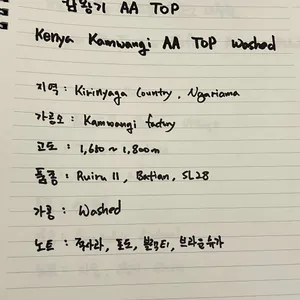 캄왕기 AA TOP
Kenya Kamwangi AA TOP washed
지역 : Kirinyaga Country, Ngariama
가공소 : Kamwangi factory
고도 : 1,680 ~ 1,800m
품종 : Ruiru 11, Batian, SL28
가공 : Washed
노트 : 적사라, 포도, 블랙티, 브라운슈가